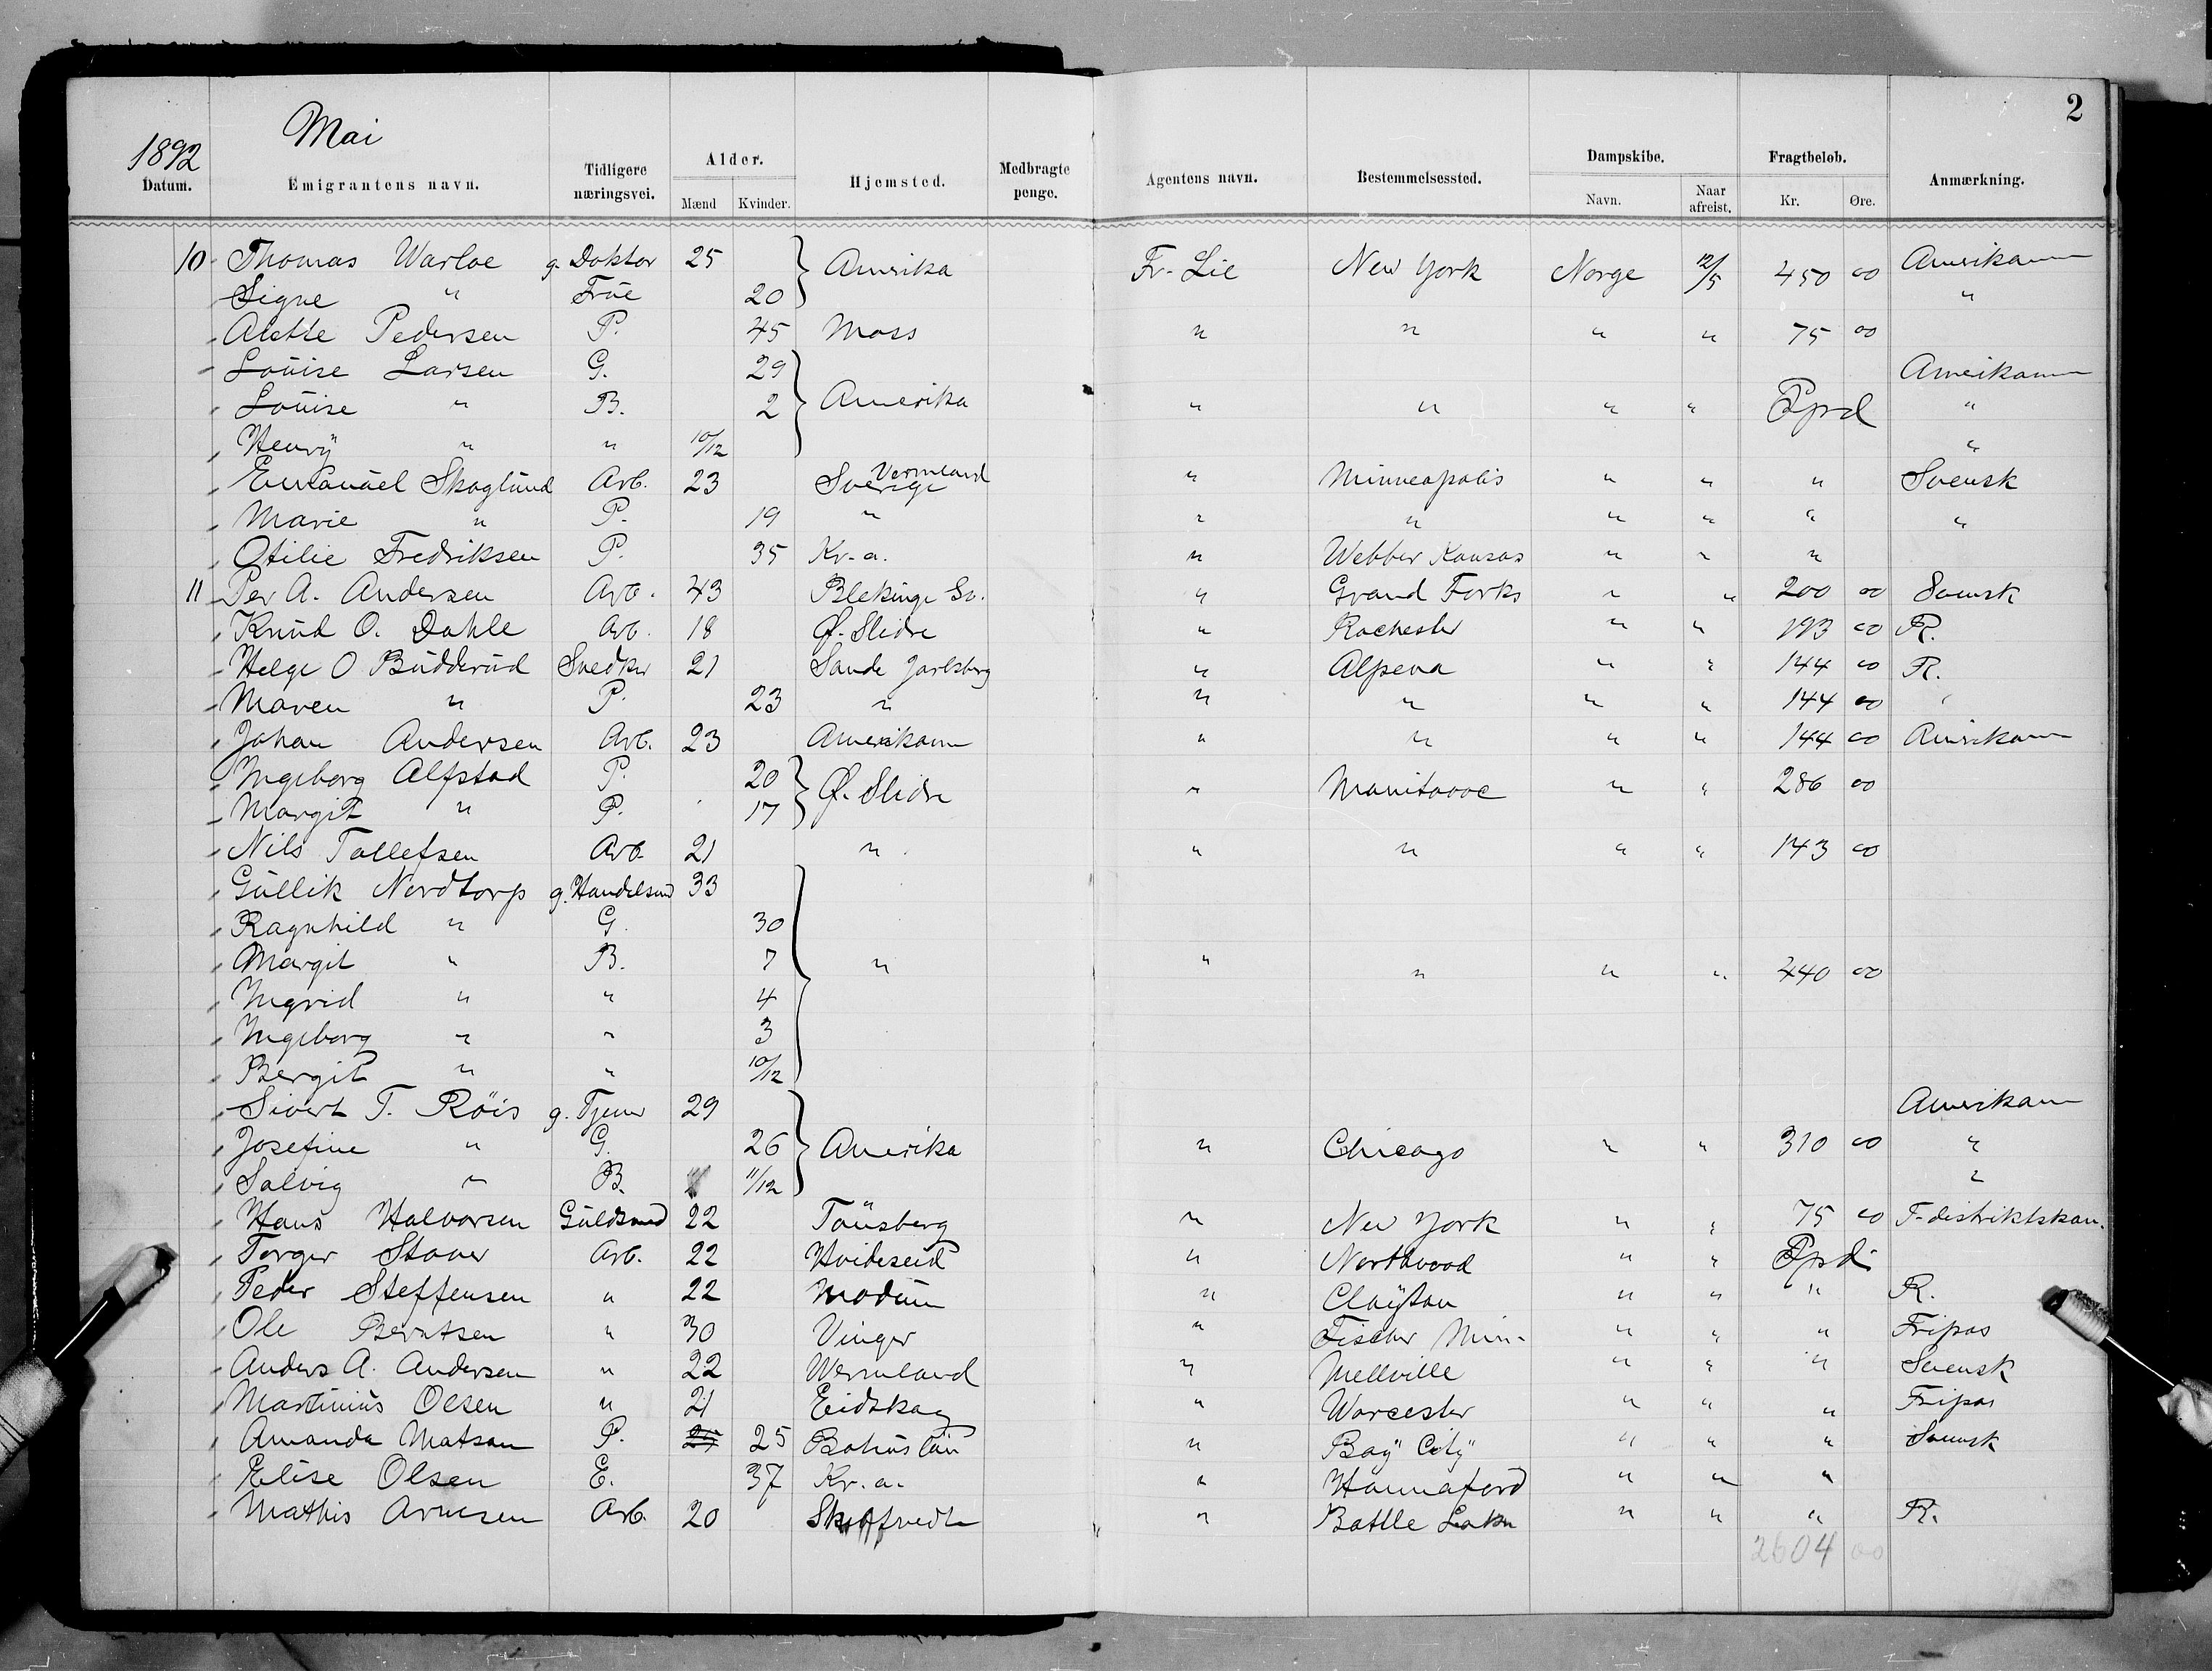 2
1892 Mai
Datum. Emigrantens navn. Tidligere næringsvei. Alder. Mænd Kvinder. Hjemsted. Medbragte penge. Agentens navn. Bestemmelsessted. Dampskibe. Navn. Naar afreist. Fragtbeløb. Kr. Øre. Anmærkning.
10 Thomas Warloe g. Doktor 25 Amerika Fr. Lie New York Norge 12/5 450 00 Amerikann
Signe " Frue 20 "
Alette Pedersen P. 45 Moss " " " " 75 00
Louise Larsen G. 29 Amerikann
Louise " B. 2 Amerika " " " " Pprd "
Henry " " 10/12 "
Emanuel Skoglund Arb. 23 Sverige Vermland " Minneapolis " " " Svensk
Marie " P. 19 " " " " " " "
Otilie Fredriksen P. 35 Kr-a. " Webber Kansas " " "
11 Per A. Andersen Arb. 43 Blekinge Sv. " Grand Forks " " 200 00 Svensk
Knud O. Dahle Arb. 18 Ø. Slidre " Rochester " " 193 00 R.
Helge O Budderud Snedker 21 Sande Jarlsberg " Alpena " " 144 00 R.
Maren " P. 23 " " " " " 144 00 "
Johan Andersen Arb. 23 Amerikann " " " " 144 00 Amerikann
Ingeborg Alfstad P. 20 Ø. Slidre " Manitowoc " " 286 00
Margit " P. 17
Nils Tollefsen Arb 21 " " " " " 143 00
Gullik Nordtorp g. Handelsmd 33
Ragnhild " G. 30
Margit " B. 7 " " " " " 440 00
Ingrid " " 4
Ingeborg " " 3
Bergit " " 10/12
Sivert T. Röis g. Tjener 29 Amerikann
Josefine " G. 26 Amerika " Chicago " " 310 00 "
Solvig " B. 11/12 "
Hans Halvorsen Guldsmed 22 Tönsberg " New York " " 75 00 F-distriktskan.
Torger Staver Arb. 22 Hvideseid " Northwood " " Pprd
Peder Steffensen " 22 Modum " Clayton " " " R.
Ole Berntsen " 30 Vinger " Fischer Min. " " " Fripas
Anders A. Andersen " 22 Wermland " Mellville " " " Svensk
Martinius Olsen " 21 Eidskog " Worcester " " " Fripas
Amanda Matson P. 25 Bohus län " Bay City " " " Svensk
Elise Olsen E. 37 Kr.a. " Hannaford " " "
Mathis Arnesen Arb. 20 " Battle Lake " " " R.
2604 00